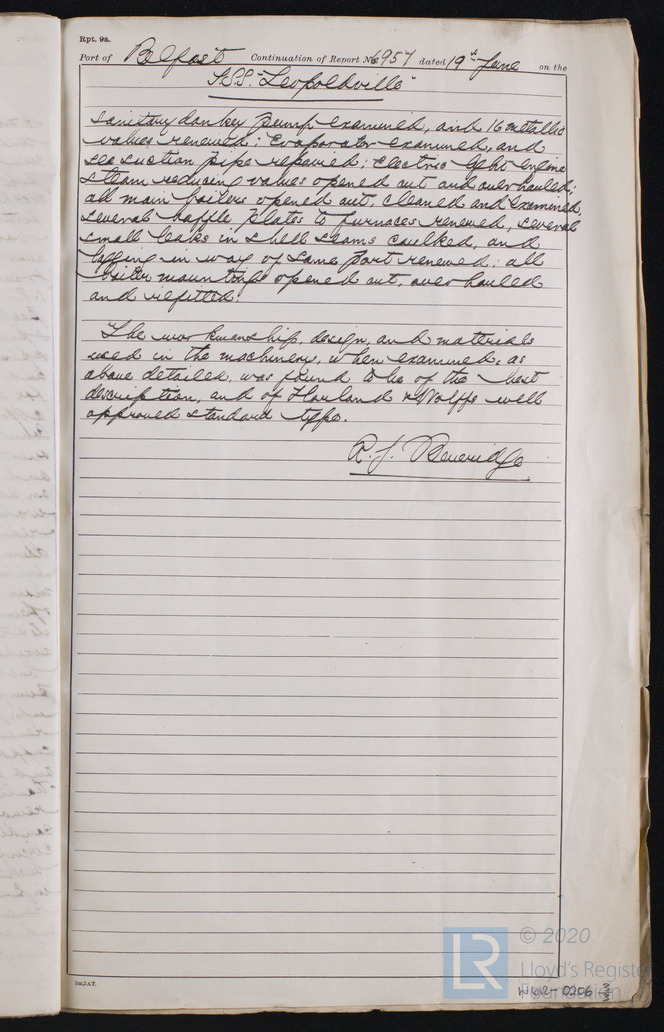 Rpt. 9a.
Port of Belfast Continuation of Report No 6957 dated 19th June on the
S.S. "Leopoldville"
sanitary donkey pump examined, and 16 metallic
valves renewed; Evaporator examined, and
sea suction pipe repaired; electric light engine
steam reducing valves opened out and overhauled;
all main boilers opened out, cleaned and examined,
several baffle plates to furnaces renewed, several
small leaks in shell seams caulked, and
lagging in way of same part renewed; all
boiler mountings opened out, overhauled
and refitted.
The workmanship, design, and materials
used in the machinery, when examined, as
above detailed, was found to be of the best
description, and of Harland & Wolffs well
approved standard type.
R. J. Beveridge
© 2020
LR
Lloyd's Register
Foundation
W612-0206 3/3